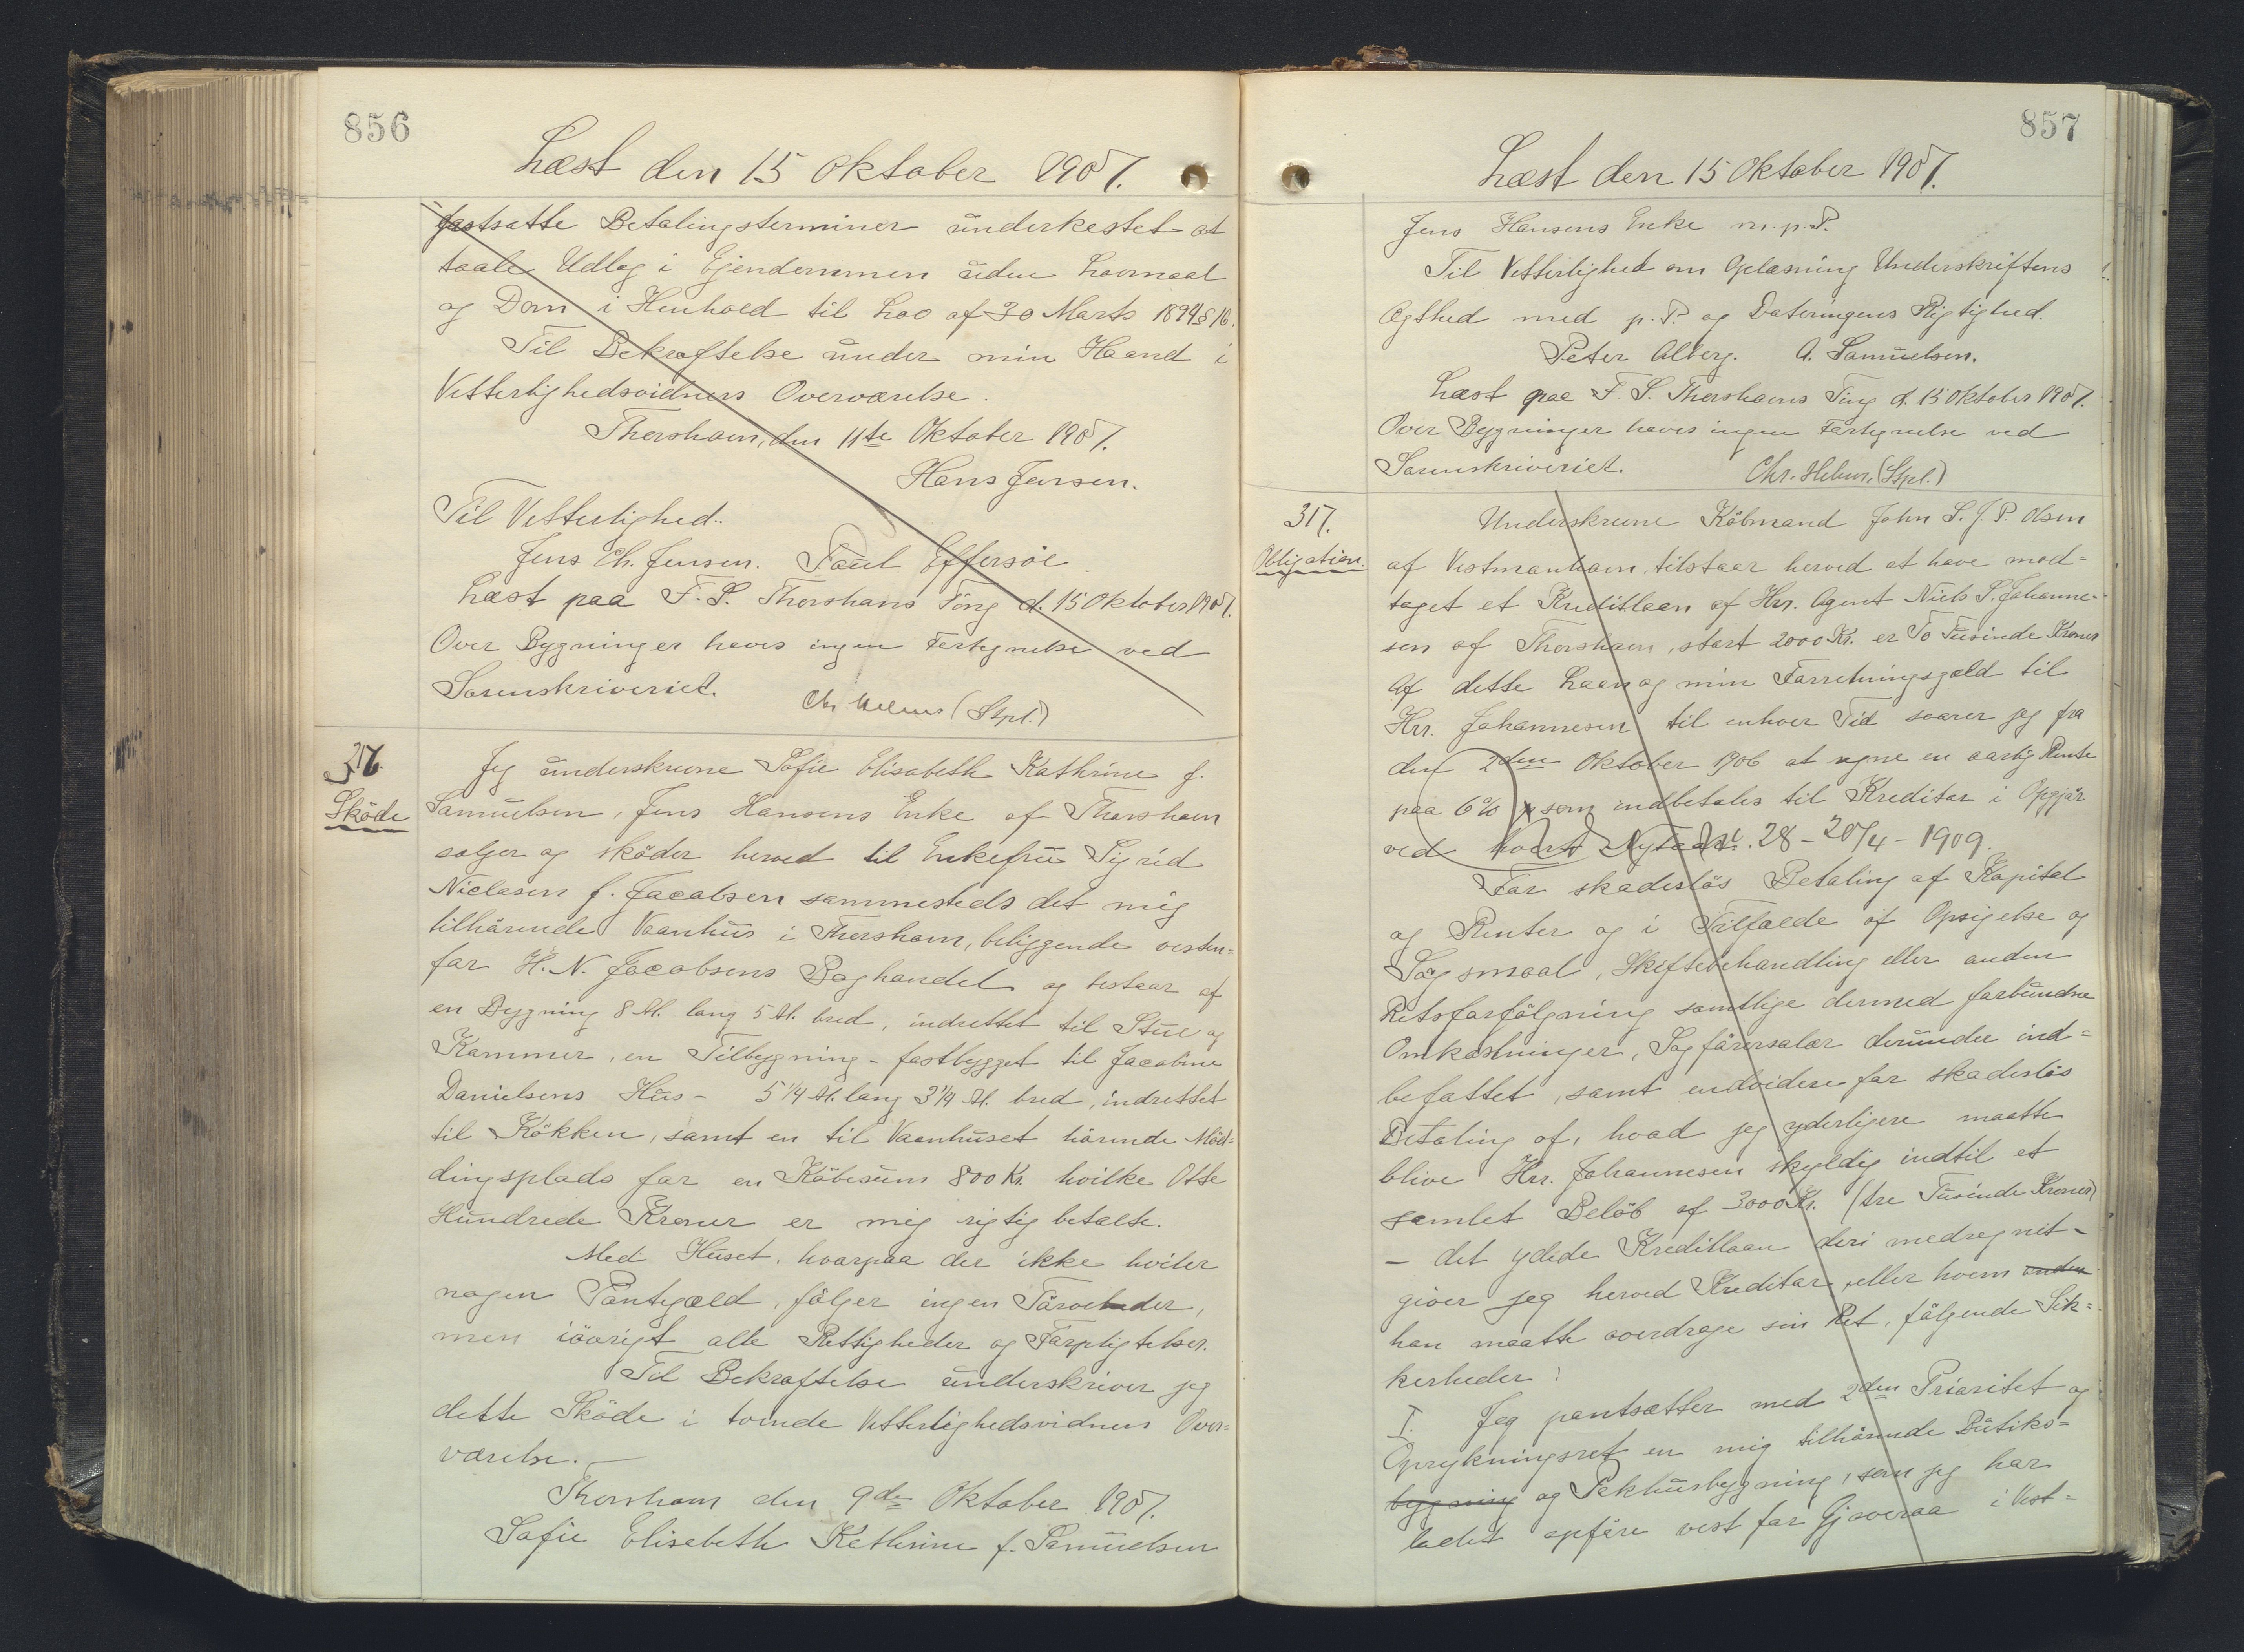 856
Læst den 15 Oktober 1907.
fastsatte Betalingsterminer underkastet at
taale Udlæg i Ejendommen uden Lovmaal
og Dom i Henhold til Lov af 30 Marts 1894 § 16.
Til Bekræftelse under min Haand i
Vitterlighedsvidners Overværelse.
Thorshavn, den 11te Oktober 1907.
Hans Jensen.
Til Vitterlighed.
Jens Chr. Jensen. Poul Effersöe
Læst paa F. S. Thorshavns Ting d. 15 Oktober 1907.
Over Bygninger haves ingen Fortegnelse ved
Sorenskriveriet.
Chr. Helms (Sspl.)
316.
Sköde
Jeg underskrevne Sofie Elisabeth Kathrine f.
Samuelsen, Jens Hansens Enke af Thorshavn
sælger og sköder herved til Enkefru Sigrid
Niclasen f. Jacobsen sammesteds det mig
tilhörende Vaanhus i Thorshavn, beliggende vesten=
for H. N. Jacobsens Boghandel og bestaar af
en Bygning 8 Al. lang 5 Al. bred, indrettet til Stue og
Kammer, en Tilbygning - fastbygget til Jacobine
Danielsens Hus - 5 1/4 Al. lang 3 1/4 Al. bred, indrettet
til Kökken, samt en til Vaanhuset hörende Möd=
dingsplads for en Köbesum 800 Kr. hvilke Otte
Hundrede Kroner er mig rigtig betalte.
Med Huset, hvorpaa der ikke hviler
nogen Pantegæld, fölger ingen Törvelader,
men iövrigt alle Rettigheder og Forpligtelser.
Til Bekræftelse underskriver jeg
dette Sköde i tvende Vitterlighedsvidners Over=
værelse.
Thorshavn den 9de Oktober 1907.
Sofie Elisabeth Kathrine f. Samuelsen
857
Læst den 15 Oktober 1907.
Jens Hansens Enke m. p. P.
Til Vitterlighed om Oplæsning Underskriftens
Ægthed med p. P. og Dateringens Rigtighed.
Peter Alberg. A. Samuelsen.
Læst paa F. S. Thorshavns Ting d. 15 Oktober 1907.
Over Bygninger haves ingen Fortegnelse ved
Sorenskriveriet.
Chr. Helms. (Sspl.)
317.
Obligation.
Underskrevne Köbmand John S. J. P. Olsen
af Vestmanhavn tilstaar herved at have mod=
taget et Kreditlaan af Hrr. Agent Niels S. Johanne=
sen af Thorshavn, stort 2000 Kr. er To Tusinde Kroner
Af dette Laan og min Forretningsgæld til
Hrr. Johannesen til enhver Tid svarer jeg fra
den 2den Oktober 1906 at regne en aarlig Rente
paa 6% som indbetales til Kreditor i Opgjör
ved hvert Nytaar. 28 - 20/4 - 1909.
For skadeslös Betaling af Kapital
og Renter og i Tilfælde af Opsigelse og
Sögsmaal, Skiftebehandling eller anden
Retsforfölgning samtlige dermed forbundne
Omkostninger, Sagförersalær derunder ind=
befattet, samt endvidere for skadeslös
Betaling af, hvad jeg yderligere maatte
blive Hrr. Johannesen skyldig indtil et
samlet Belöb af 3000 Kr. (tre Tusinde Kroner)
- det ydede Kreditlaan deri medregnet -
giver jeg herved Kreditor, eller hvem anden
han maatte overdrage sin Ret, fölgende Sik=
kerheder:
I. Jeg pantsætter med 2den Prioritet og
Oprykningsret en mig tilhörende Butiks=
bygning og Pakhusbygning, som jeg har
ladet opföre vest for Gjoveraa i Vest=